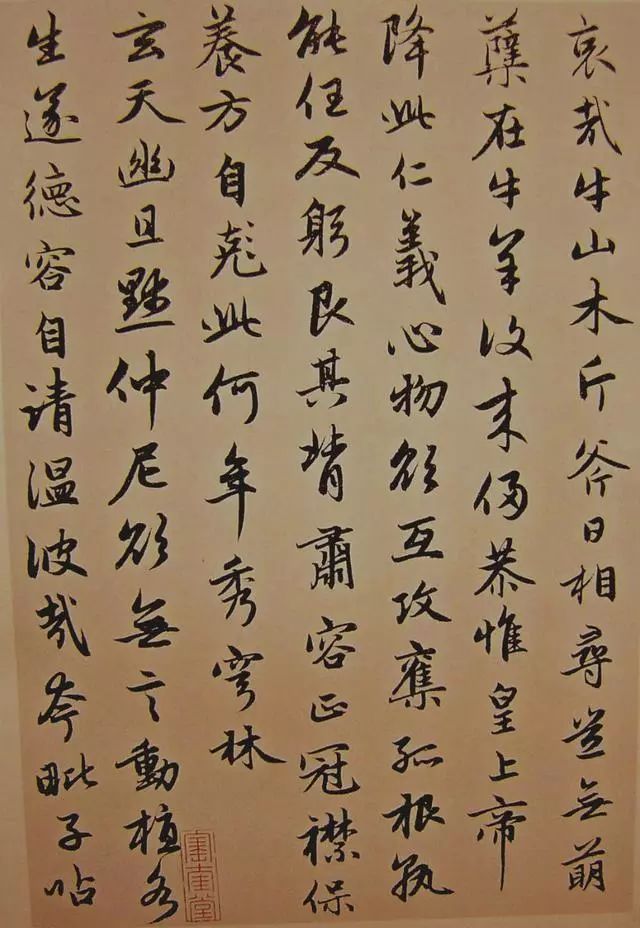 哀哉牛山木斤斧日相尋豈无萌
蘖在牛羊復来侵恭惟皇上帝
降此仁義心物欲互攻奪孤根孰
能任反躬艮其背肅容正冠襟保
養方自此何年秀穹林
玄天幽且默仲尼欲無言動植各
生遂德容自清温彼哉夸毗子呫